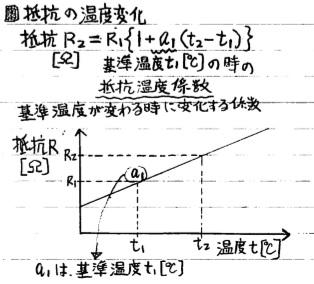 圖抵抗の温度変化
抵抗R₂=R₁{1+a₁(t₂-t₁)}
[Ω] 基準温度t₁[℃]の時の
抵抗温度係数
基準温度が変わる時に変化する係数
抵抗R
[Ω]
R₂
R₁
(a₁)
t₁ t₂ 温度t[℃]
a₁は基準温度t₁[℃]